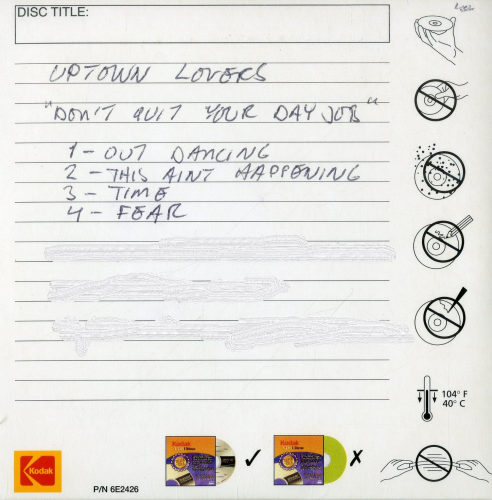 DISC TITLE:
UPTOWN LOVERS
"DON'T QUIT YOUR DAY JOB"
1 - OUT DANCING
2 - THIS AINT HAPPENING
3 - TIME
4 - FEAR
104° F
40° C
Kodak
Kodak
Kodak
P/N 6E2426